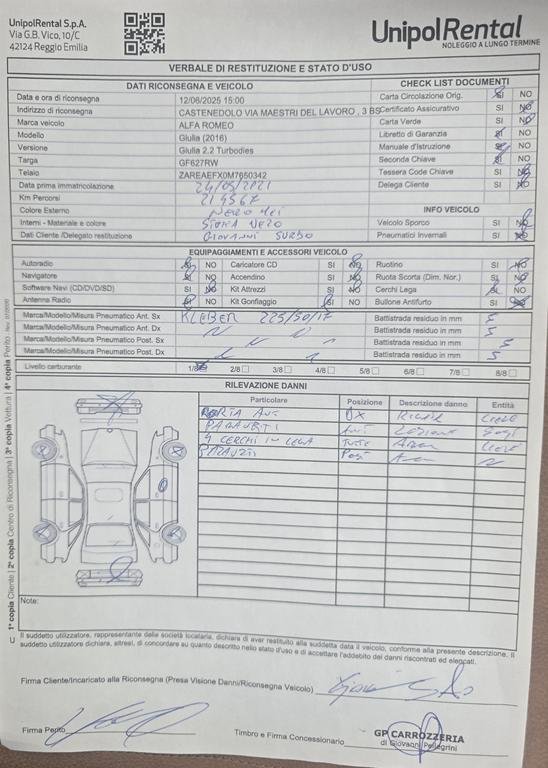 UnipolRental S.p.A.
Via G.B. Vico, 10/C
42124 Reggio Emilia
UnipolRental
NOLEGGIO A LUNGO TERMINE
VERBALE DI RESTITUZIONE E STATO D'USO
DATI RICONSEGNA E VEICOLO
Data e ora di riconsegna 12/06/2025 15:00
Indirizzo di riconsegna CASTENEDOLO VIA MAESTRI DEL LAVORO , 3 BS
Marca veicolo ALFA ROMEO
Modello Giulia (2016)
Versione Giulia 2.2 Turbodies
Targa GF627RW
Telaio ZAREAEFX0M7650342
Data prima immatricolazione 24/05/2021
Km Percorsi 214567
Colore Esterno Nero Met
Interni - Materiale e colore Stoffa Nero
Dati Cliente /Delegato restituzione Giovanni Surso
CHECK LIST DOCUMENTI
Carta Circolazione Orig. SI NO
Certificato Assicurativo SI NO
Carta Verde SI NO
Libretto di Garanzia SI NO
Manuale d'Istruzione SI NO
Seconda Chiave SI NO
Tessera Code Chiave SI NO
Delega Cliente SI NO
INFO VEICOLO
Veicolo Sporco SI NO
Pneumatici Invernali SI NO
EQUIPAGGIAMENTI E ACCESSORI VEICOLO
Autoradio SI NO Caricatore CD SI NO Ruotino SI NO
Navigatore SI NO Accendino SI NO Ruota Scorta (Dim. Nor.) SI NO
Software Navi (CD/DVD/SD) SI NO Kit Attrezzi SI NO Cerchi Lega SI NO
Antenna Radio SI NO Kit Gonfiaggio SI NO Bullone Antifurto SI NO
Marca/Modello/Misura Pneumatico Ant. Sx KLEBER 225/50/17 Battistrada residuo in mm 5
Marca/Modello/Misura Pneumatico Ant. Dx Battistrada residuo in mm 5
Marca/Modello/Misura Pneumatico Post. Sx Battistrada residuo in mm 5
Marca/Modello/Misura Pneumatico Post. Dx Battistrada residuo in mm 5
Livello carburante 1/8 2/8 3/8 4/8 5/8 6/8 7/8 8/8
RILEVAZIONE DANNI
Particolare Posizione Descrizione danno Entità
PORTA ANT DX
PARAURTI ANT
4 CERCHI IN LEGA TUTTE
PARAURTI Post
Note:
Il suddetto utilizzatore, rappresentante delle società locataria, dichiara di aver restituito alla suddetta data il veicolo, conforme alla presente descrizione. Il
suddetto utilizzatore dichiara, altresì, di concordare su quanto descritto nello stato d'uso e di accettare l'addebito dei danni riscontrati ed elencati.
Firma Cliente/Incaricato alla Riconsegna (Presa Visione Danni/Riconsegna Veicolo)
Firma Perito
Timbro e Firma Concessionario
GP CARROZZERIA
di Giovanni Pellegrini
1ª copia Cliente | 2ª copia Centro di Riconsegna | 3ª copia Vettura | 4ª copia Perito